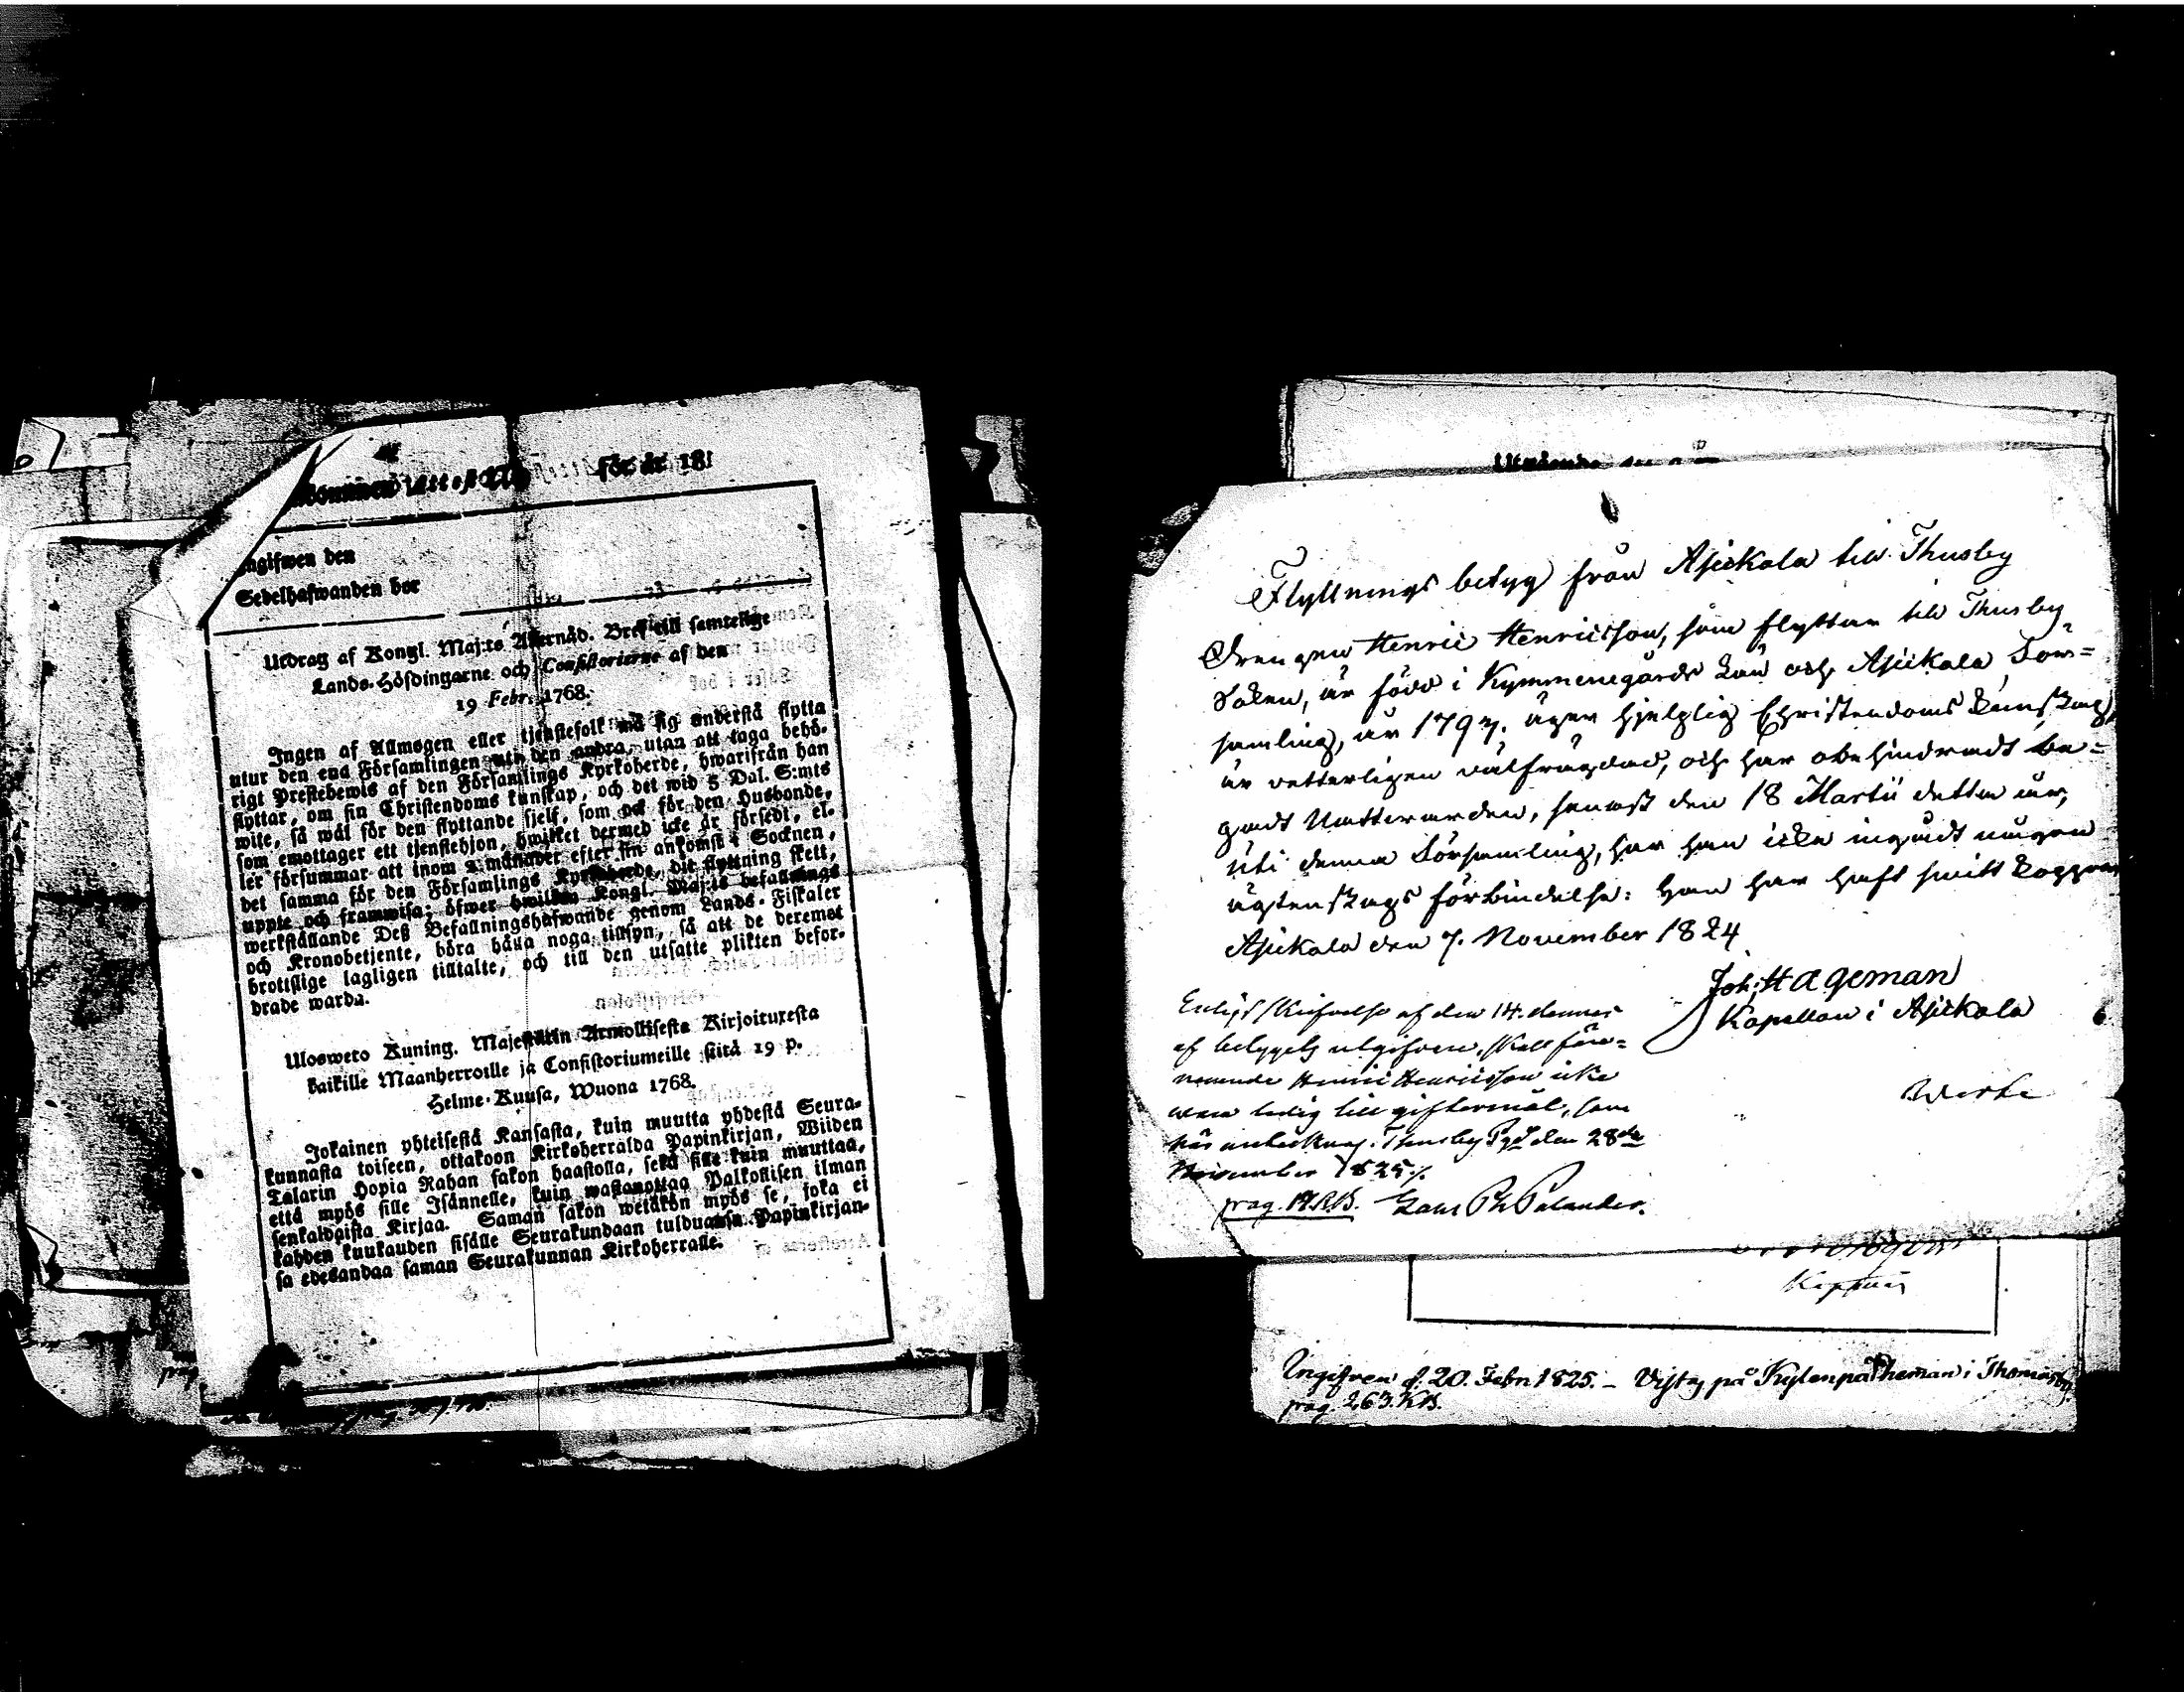 för år 181
ngifwen den
Sedelhafwanden bor
Utdrag af Kongl. Maj:ts Allernåd. Bref till samtelige
Lands-Höfdingarne och Consistorierne af den
19 Febr. 1768.
Ingen af Allmogen eller tjenstefolk må sig understå flytta
utur den ena Församlingen uti den andra, utan att taga behö-
rigt Prestebewis af den Församlings Kyrkoherde, hwarifrån han
flyttar, om sin Christendoms kunskap, och det wid 5 Dal. S:mts
wite, så wäl för den flyttande sjelf, som ock för den Husbonde,
som emottager ett tjenstehjon, hwilket dermed icke är försedt, el-
ler försummar att inom 2:månader efter sin ankomst i Socknen,
det samma för den Församlings Kyrkoherde, dit flyttning skett,
uppte och framwisa; öfwer hwilken Kongl. Maj:ts befallnings
werkställande Deß Befallningshafwande genom Lands-Fiskaler
och Kronobetjente, böra hålla noga tillsyn, så att de deremot
brottslige lagligen tilltalte, och till den utsatte plikten befor-
drade warda.
Ulosweto Kuning. Majestätin Armollisesta Kirjoituxesta
kaikille Maanherroille ja Consistoriumeille siitä 19 p.
Helme-Kuusa, Wuona 1768.
Jokainen yhteisestä Kansasta, kuin muutta yhdestä Seura-
kunnasta toiseen, ottakoon Kirkoherralda Papinkirjan, Wiiden
Talarin Hopia Rahan sakon haastolla, sekä sille kuin muuttaa,
että myös sille Isännelle, kuin wastanottaa Palkollisen ilman
senkaldaista Kirjaa. Saman sakon wetäkön myös se, joka ei
kahden kuukauden sisälle Seurakundaan tulduansa Papinkirjan-
sa edesandaa saman Seurakunnan Kirkoherralle.
Flyttnings betyg från Asickala till Thusby
Drengen Henric Henricsson, som flyttar till Thusby
Soken, är född i Kymmenegårds Län och Asickala För=
samling, år 1797. äger hjelplig Christendoms Kunskap,
är vetterligen välfrägdad, och har obehindradt be=
gådt Nattvarden, senast den 18 Martii detta år,
uti denna Församling, har han icke ingådt någon
ägtenskaps förbindelse: han har haft smitt koppor
Asickala den 7. November 1824
Joh: Hageman
Kapellan i Asickala
Enligt Skrifvelse af den 14. dennes
af betygets utgifvare, skall före=
nämnde Henric Henricsson icke
vara ledig till giftermål, som
här antecknas. Thusby Pgd den 28de
November 1825./.
pag.
Palander.
Ingifven d. 20. Febr 1825. –
pag. 263. KB.